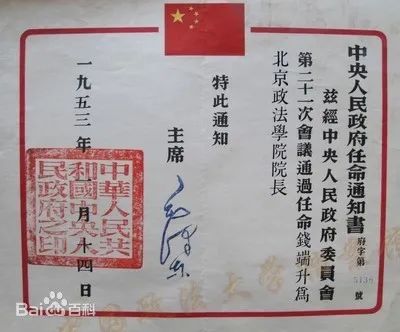 中央人民政府任命通知書
府字第
號
茲經中央人民政府委員會
第二十一次會議通過任命錢端升爲
北京政法學院院長
特此通知
主席
毛澤東
一九五三年 月十四日
中華人民共
和國中央人
民政府之印
Bai度百科